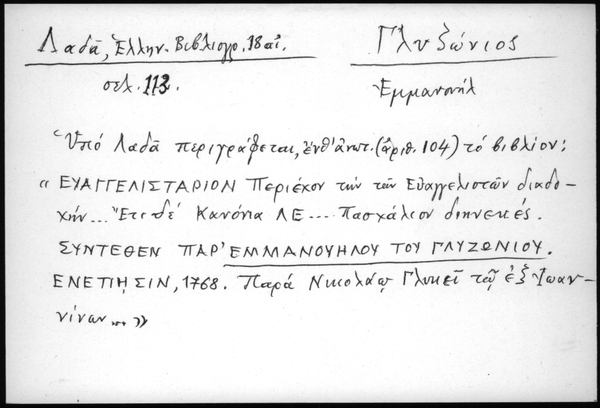 Λαδᾶ, Ἑλλην. Βιβλιογρ. 18 αἰ. Γλυζώνιος
σελ. 113. Ἐμμανουήλ
Ὑπό Λαδᾶ περιγράφεται, ἔνθ' ἀνωτ. (ἀριθ. 104) τό βιβλίον:
« ΕΥΑΓΓΕΛΙΣΤΑΡΙΟΝ Περιέχον τήν τῶν Εὐαγγελιστῶν διαδο-
χήν... Ἔτι δέ Κανόνια ΛΕ.... Πασχάλιον διηνεκές.
ΣΥΝΤΕΘΕΝ ΠΑΡ' ΕΜΜΑΝΟΥΗΛΟΥ ΤΟΥ ΓΛΥΖΩΝΙΟΥ.
ΕΝΕΤΙῌΣΙΝ, 1768. Παρά Νικολάῳ Γλυκεῖ τῷ ἐξ Ἰωαν-
νίνων... »